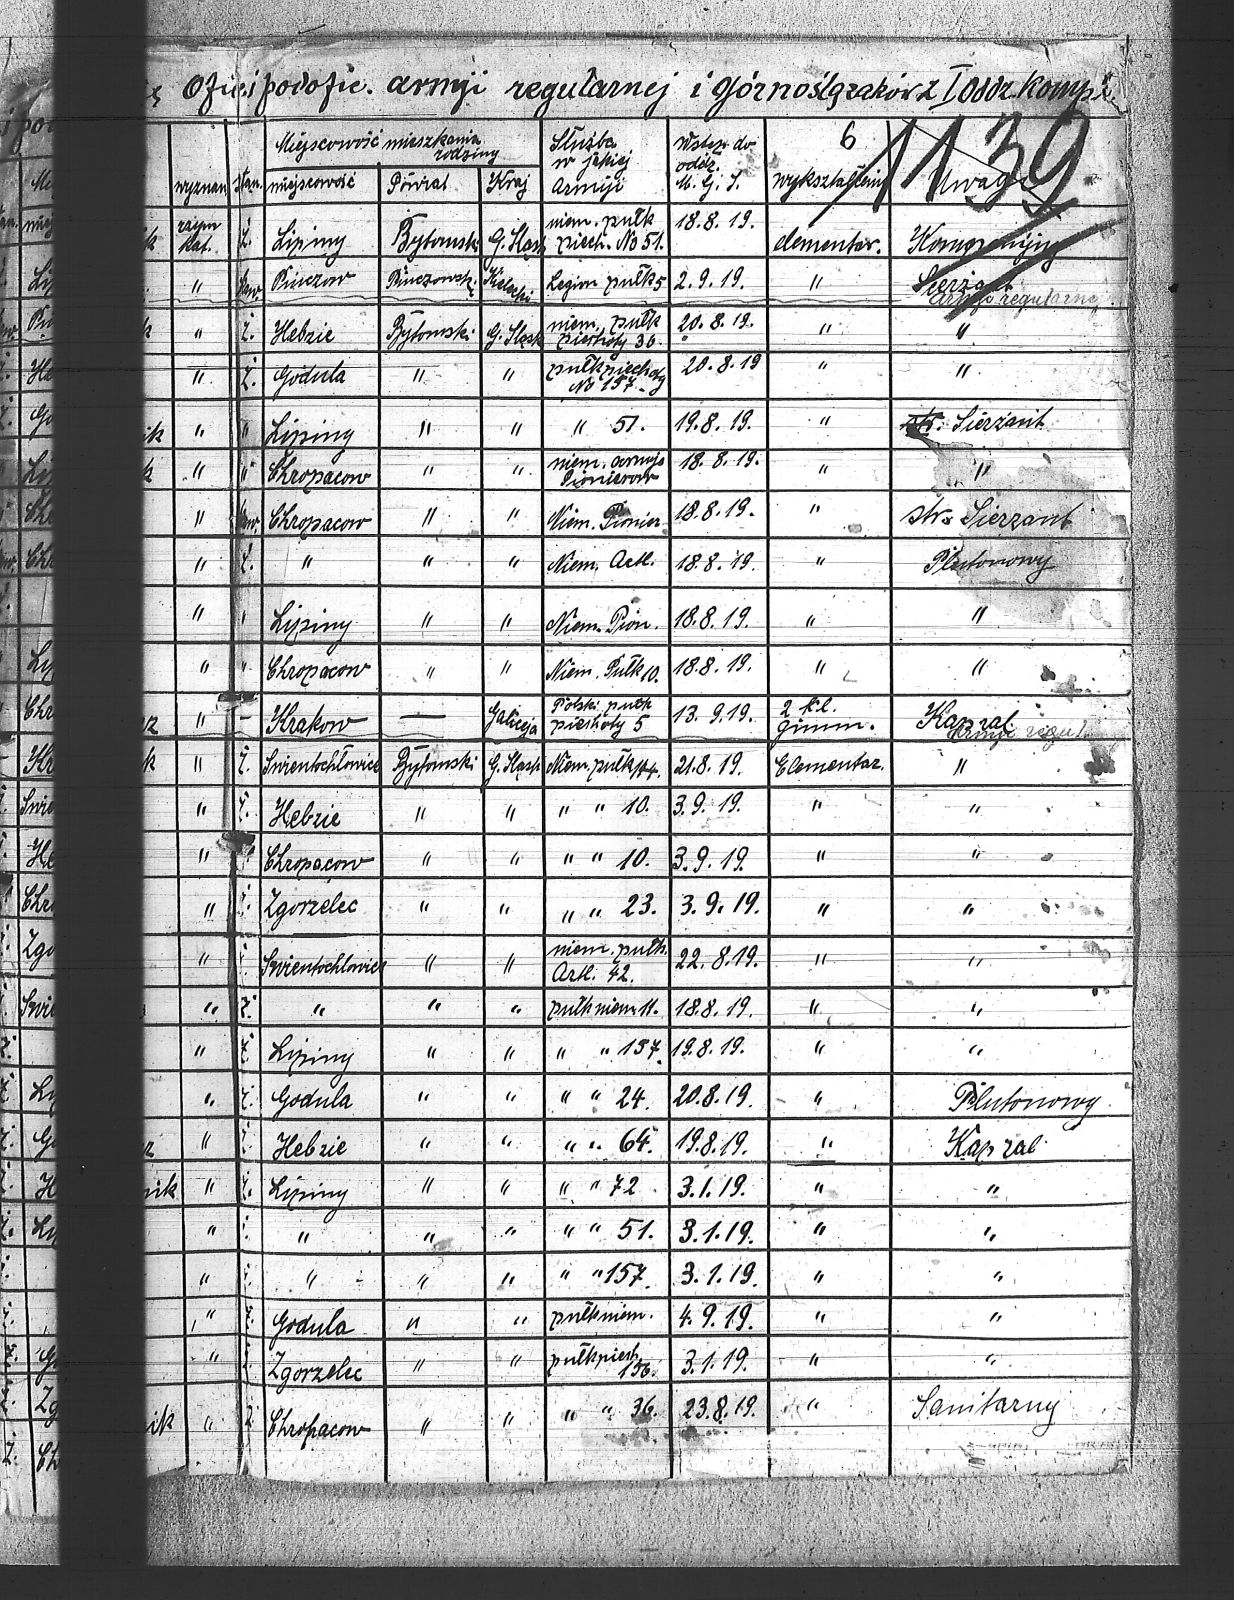 Ofic. i podofic. armji regularnej i Górnoślązaków z I oddz. komp.
6 1139
wyznan. stan. Miejscowość mieszkania rodziny Służba w jakiej Armiji Wstęp do oddz. M. G. S. wykształcenie Uwaga
miejscowość Powiat Kraj
rzym kat. Ż. Lipiny Bytomski G. Śląsk niem. pułk piech. No 51. 18.8.19. elementar. Kompanijny
" kaw. Pinczow Pinczowski Kielecki Legion pułk 5 2.9.19. " Sierżant Armji regularnej
" Ż. Hebzie Bytomski G. Śląsk niem. pułk piechoty 36. 20.8.19. " "
" Ż. Godula " " pułk piechoty No 157. 20.8.19 " "
" " Lipiny " " " 51. 19.8.19. " str. Sierżant
" " Chropacow " " niem. armja Pionierow 18.8.19. " "
" kaw. Chropacow " " Niem. Pionier 18.8.19. " str. Sierzant
" Ż. " " " Niem. Artl. 18.8.19. " Plutonowy
" " Lipiny " " Niem. Pion. 18.8.19. " "
" " Chropacow " " Niem. Pułk 10. 18.8.19. " "
" — Krakow — Galicja Polski pułk piechoty 5 13.9.19. 2 kl. gimm. Kapral Armji regul
" Ż. Swientochłowice Bytomski G. Śląsk Niem. pułk 21.8.19. Elementar. "
" Ż. Hebzie " " " " 10. 3.9.19. " "
" Ż. Chropacow " " " " 10. 3.9.19. " "
" Ż. Zgorzelec " " " " 23. 3.9.19. " "
" Swientochlowice " " niem. pułk. Artl. 42. 22.8.19. " "
" Ż. " " " pułk niem 11. 18.8.19. " "
" Ż. Lipiny " " " " 157. 19.8.19. " "
" Ż. Godula " " " " 24. 20.8.19. " Plutonowy
" Ż. Hebzie " " " " 64. 19.8.19. " Kapral
" Ż. Lipiny " " " " 72 3.1.19. " "
" " " " " " 51. 3.1.19. " "
" Ż. " " " " " 157. 3.1.19. " "
" Ż. Godula " " pułk niem. 4.9.19. " "
" Zgorzelec " " pułk piech. 156. 3.1.19. " "
" Ż Chropacow " " " " 36. 23.8.19. " Sanitarny